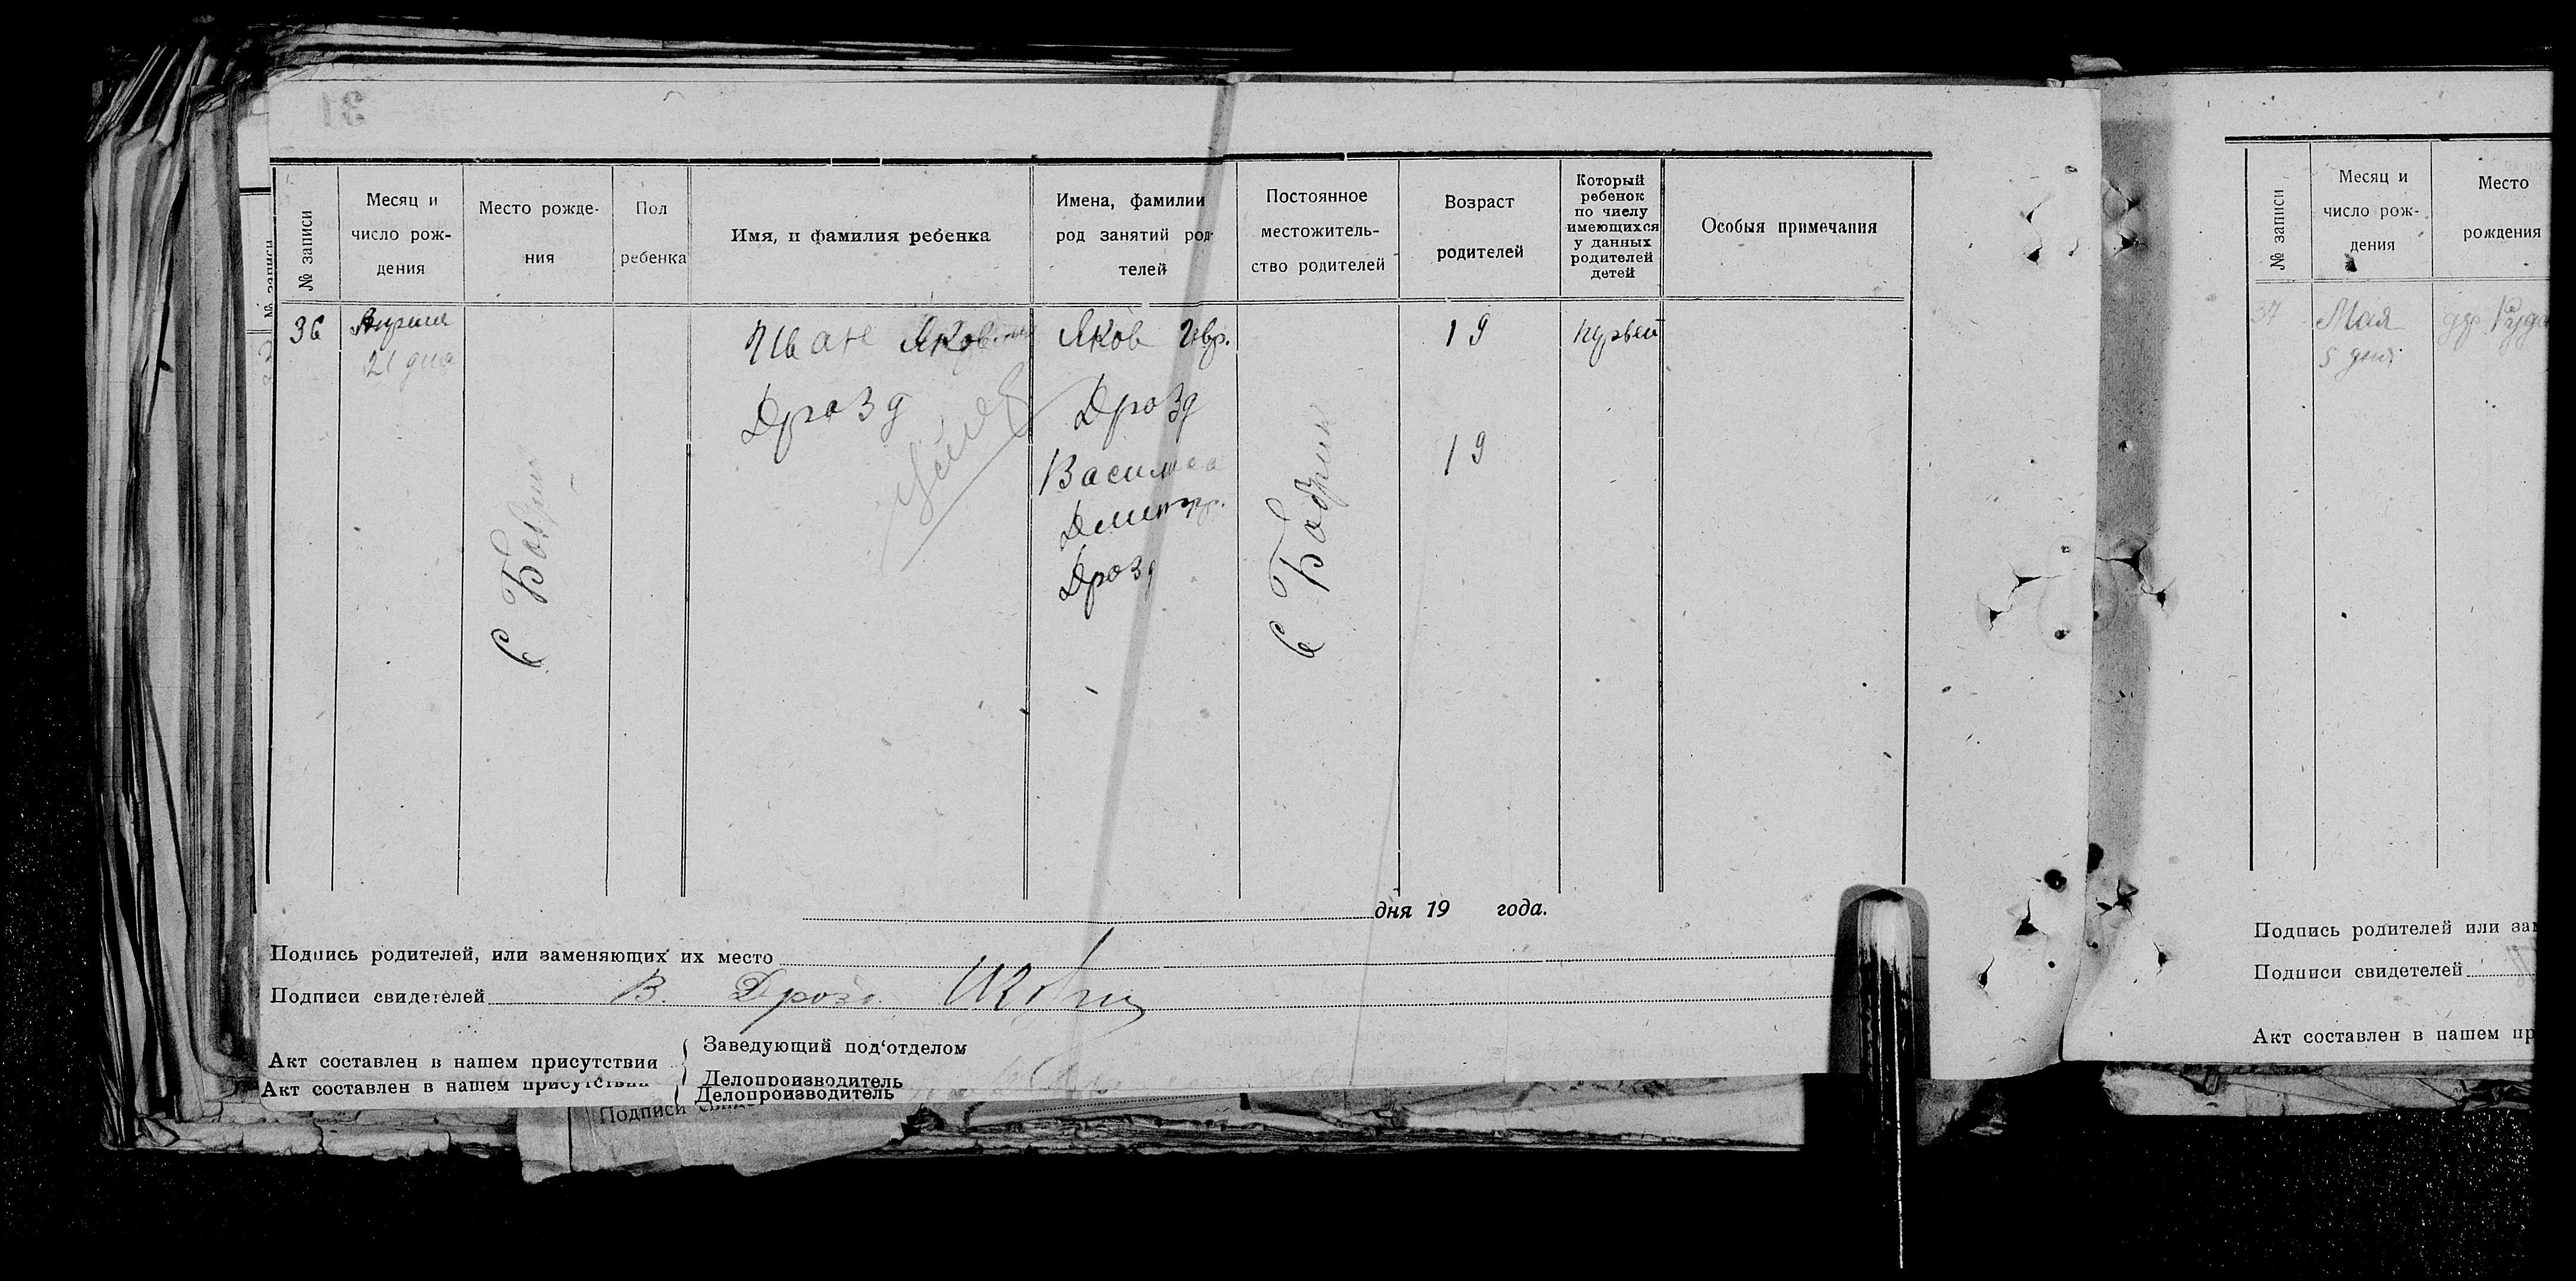 31
№ записи
Месяц и
число рож-
дения
Место рожде-
ния
Пол
ребенка
Имя, и фамилия ребенка
Имена, фамилии
род занятий род-
телей
Постоянное
местожитель-
ство родителей
Возраст
родителей
Который
ребенок
по числу
имеющихся
у данных
родителей
детей
Особыя примечания
36
Апреля
21 дня
С Бобрик
Иван Яков
Дрозд
Яков
Дрозд
Василиса
Дмитр.
Дрозд
С Бобрик
19
19
первый
дня 19 года.
Подпись родителей, или заменяющих их место
Подписи свидетелей В. Дрозд
Акт составлен в нашем присутствии
Заведующий под'отделом
Делопроизводитель
Акт составлен в нашем присутствии
Делопроизводитель
Подписи
№ записи
Месяц и
число рож-
дения
Место
рождения
37
Мая
5 дня
дер. Руда
Подпись родителей или зам
Подписи свидетелей
Акт составлен в нашем пр